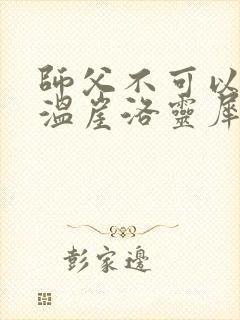 師父不可以
溫崖洛靈犀
彭家邊